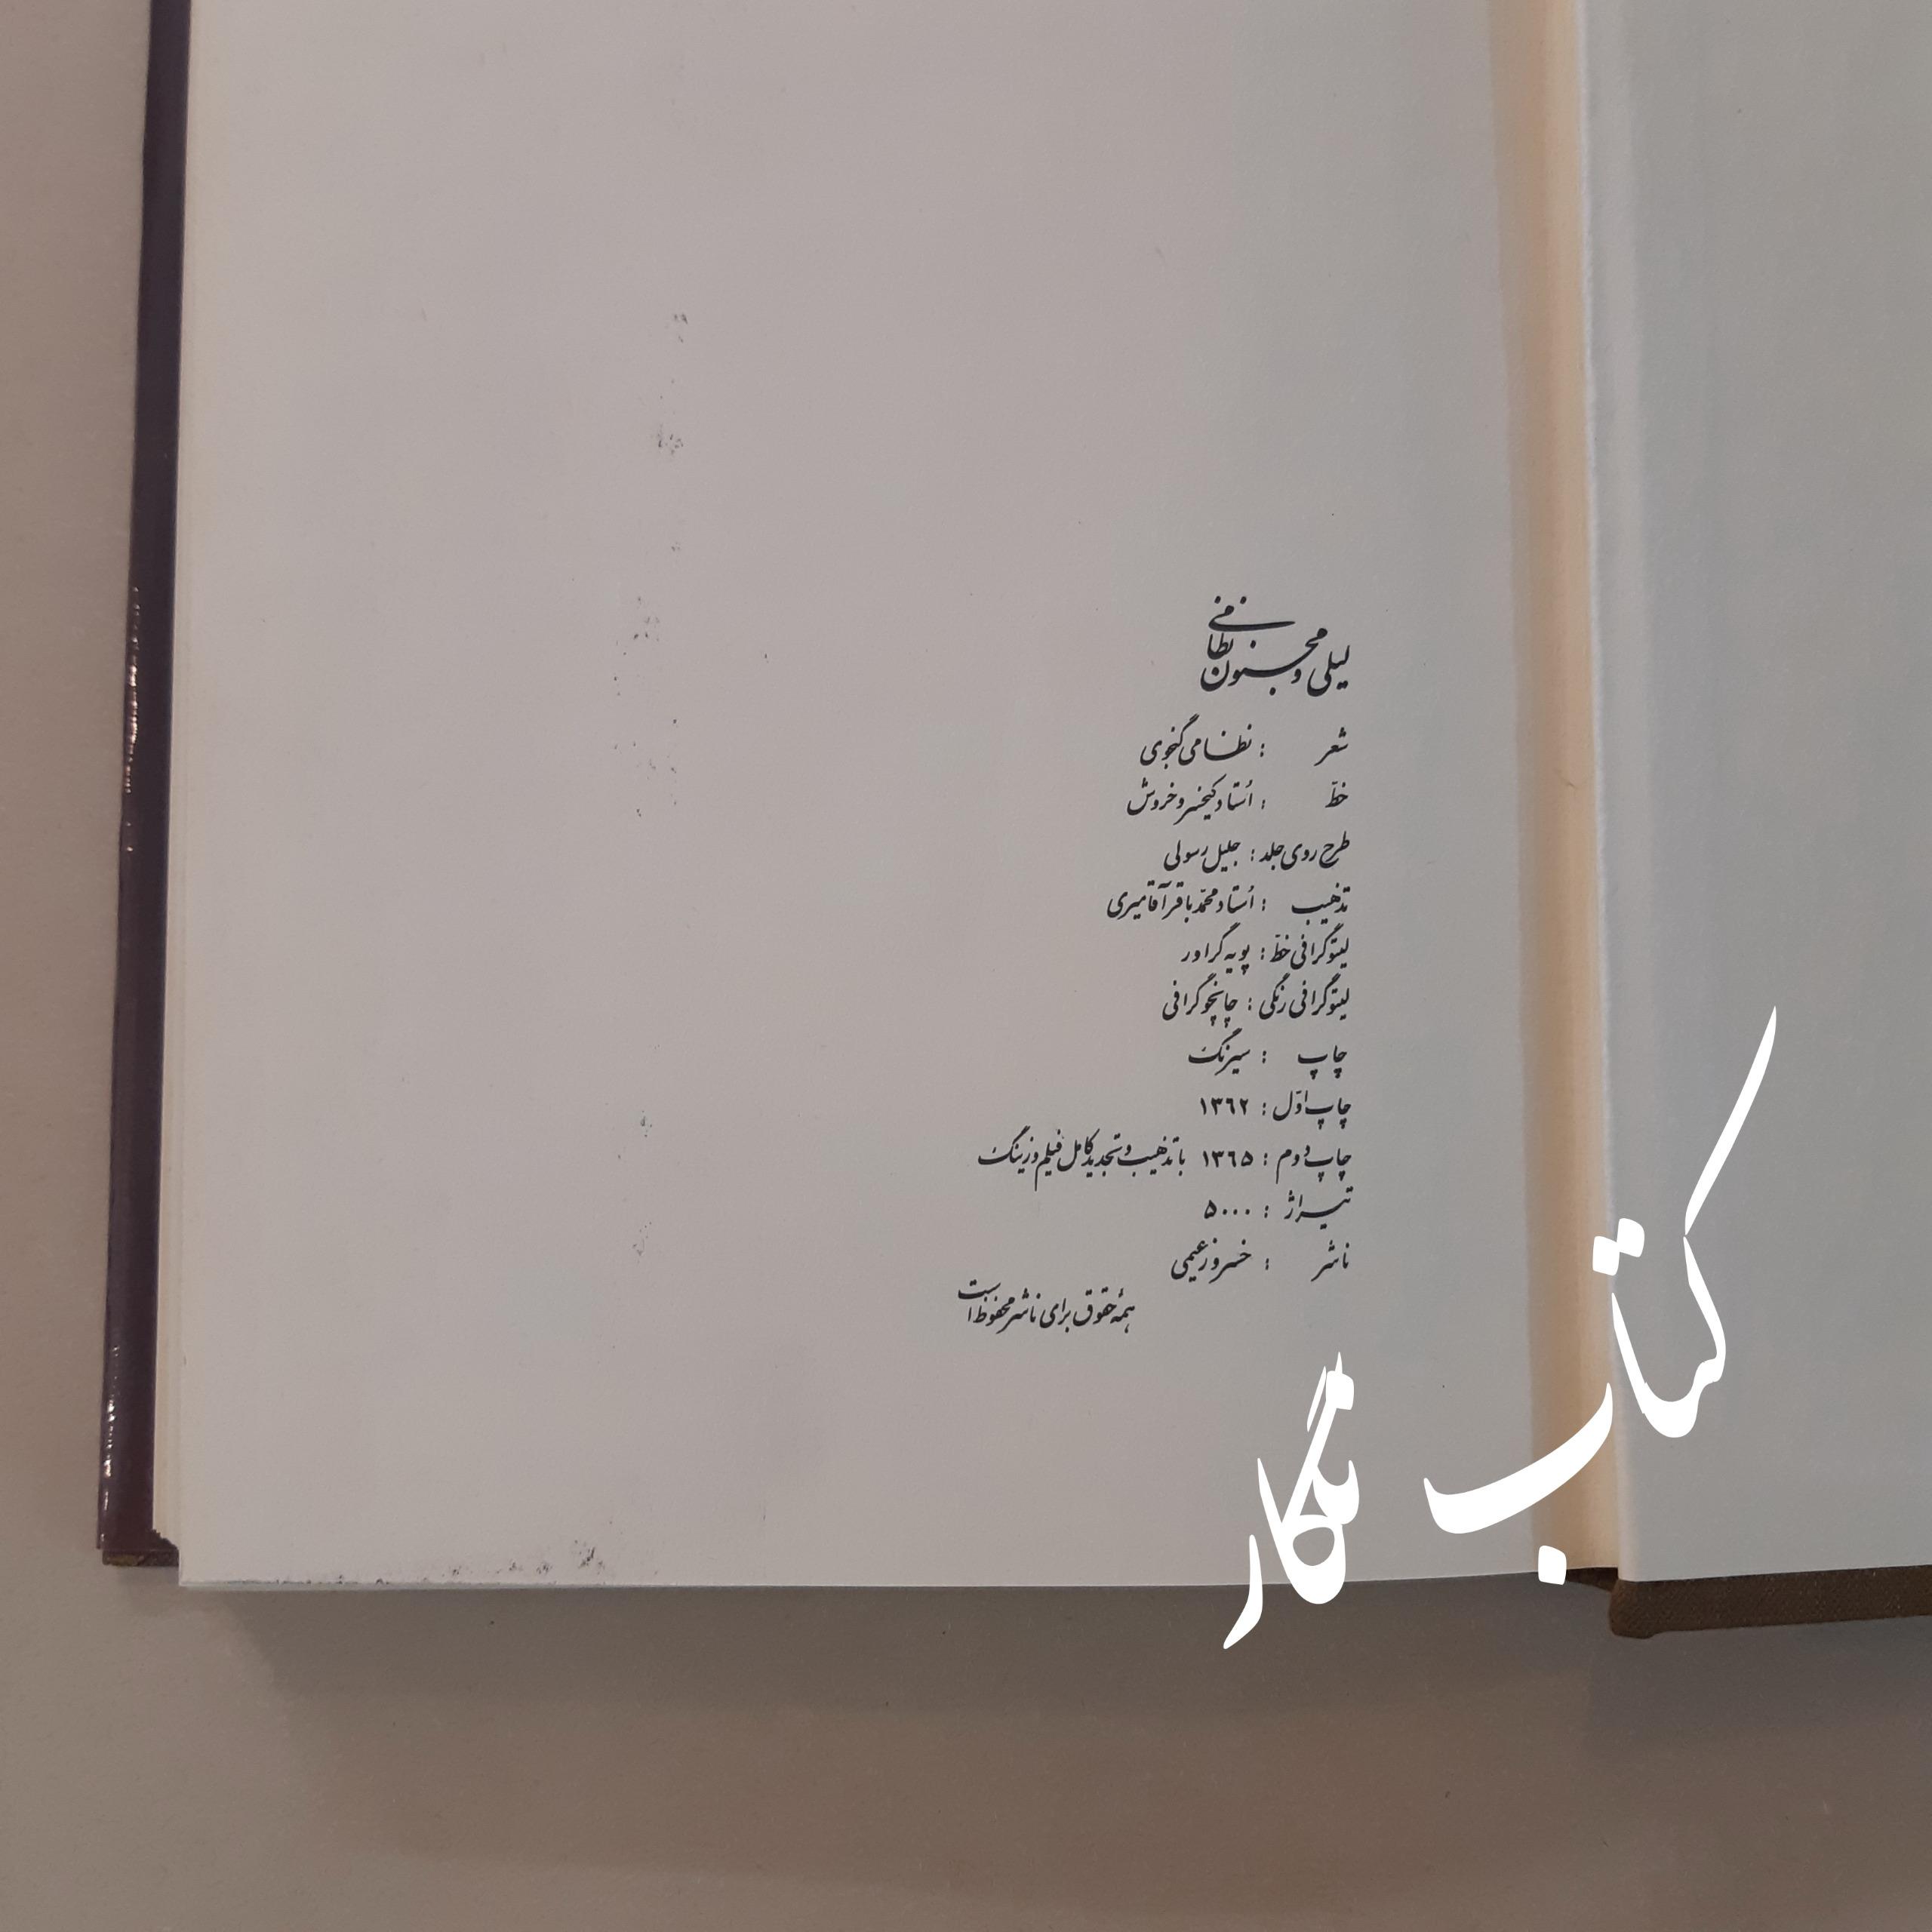 لیلی و مجنون نظامی
شعر : نظامی گنجوی
خطّ : اُستاد کیخسرو خروش
طرح روی جلد : جلیل رسولی
تذهیب : اُستاد محمّد باقر آقامیری
لیتوگرافی خطّ : پویه گراور
لیتوگرافی رنگی : چاپخوگرافی
چاپ : سیزنگ
چاپ اوّل : ۱۳۶۲
چاپ دوم : ۱۳۶۵ با تذهیب و تجدید کامل فیلم و زینگ
تیراژ : ۵۰۰۰
ناشر : خسرو زعیمی
همۀ حقوق برای ناشر محفوظ است
کتاب نگار